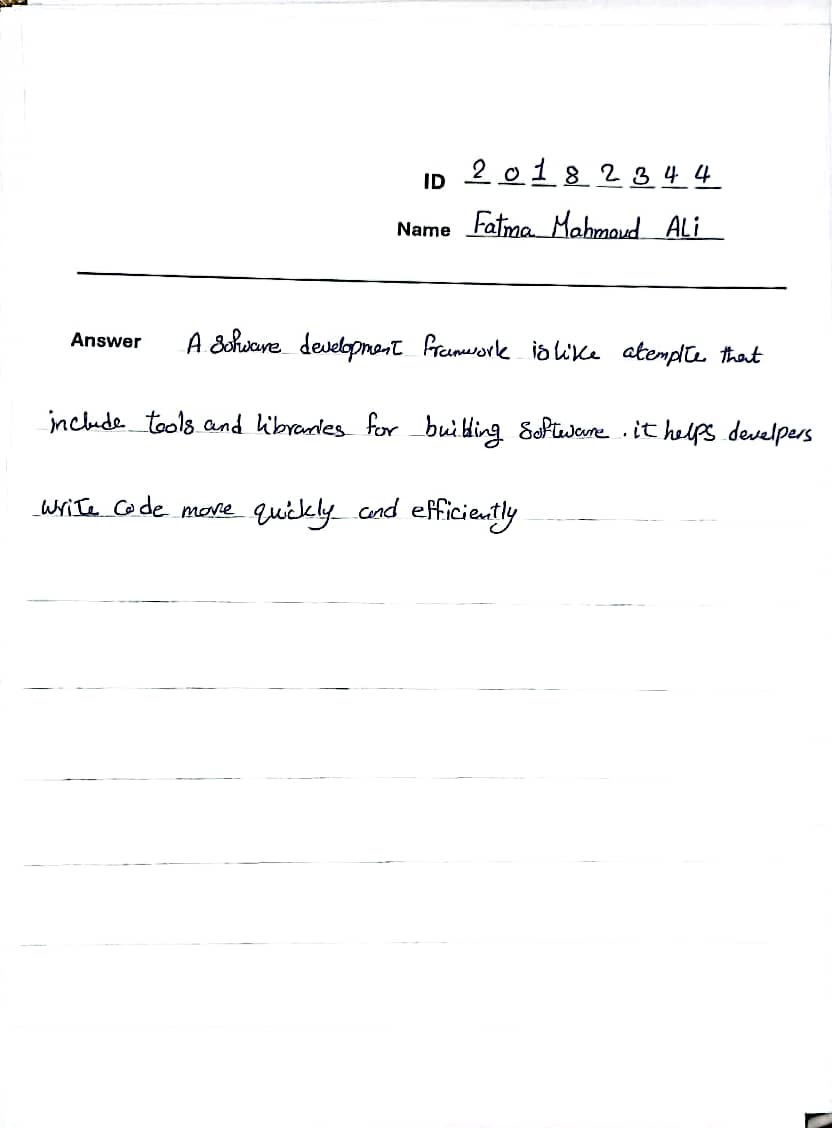 ID 2 0 1 8 2 3 4 4
Name Fatma Mahmoud ALi
Answer A software development framwork is like atemplte that
include tools and libraries for building software . it helps develpers
write code more quickly and efficiently